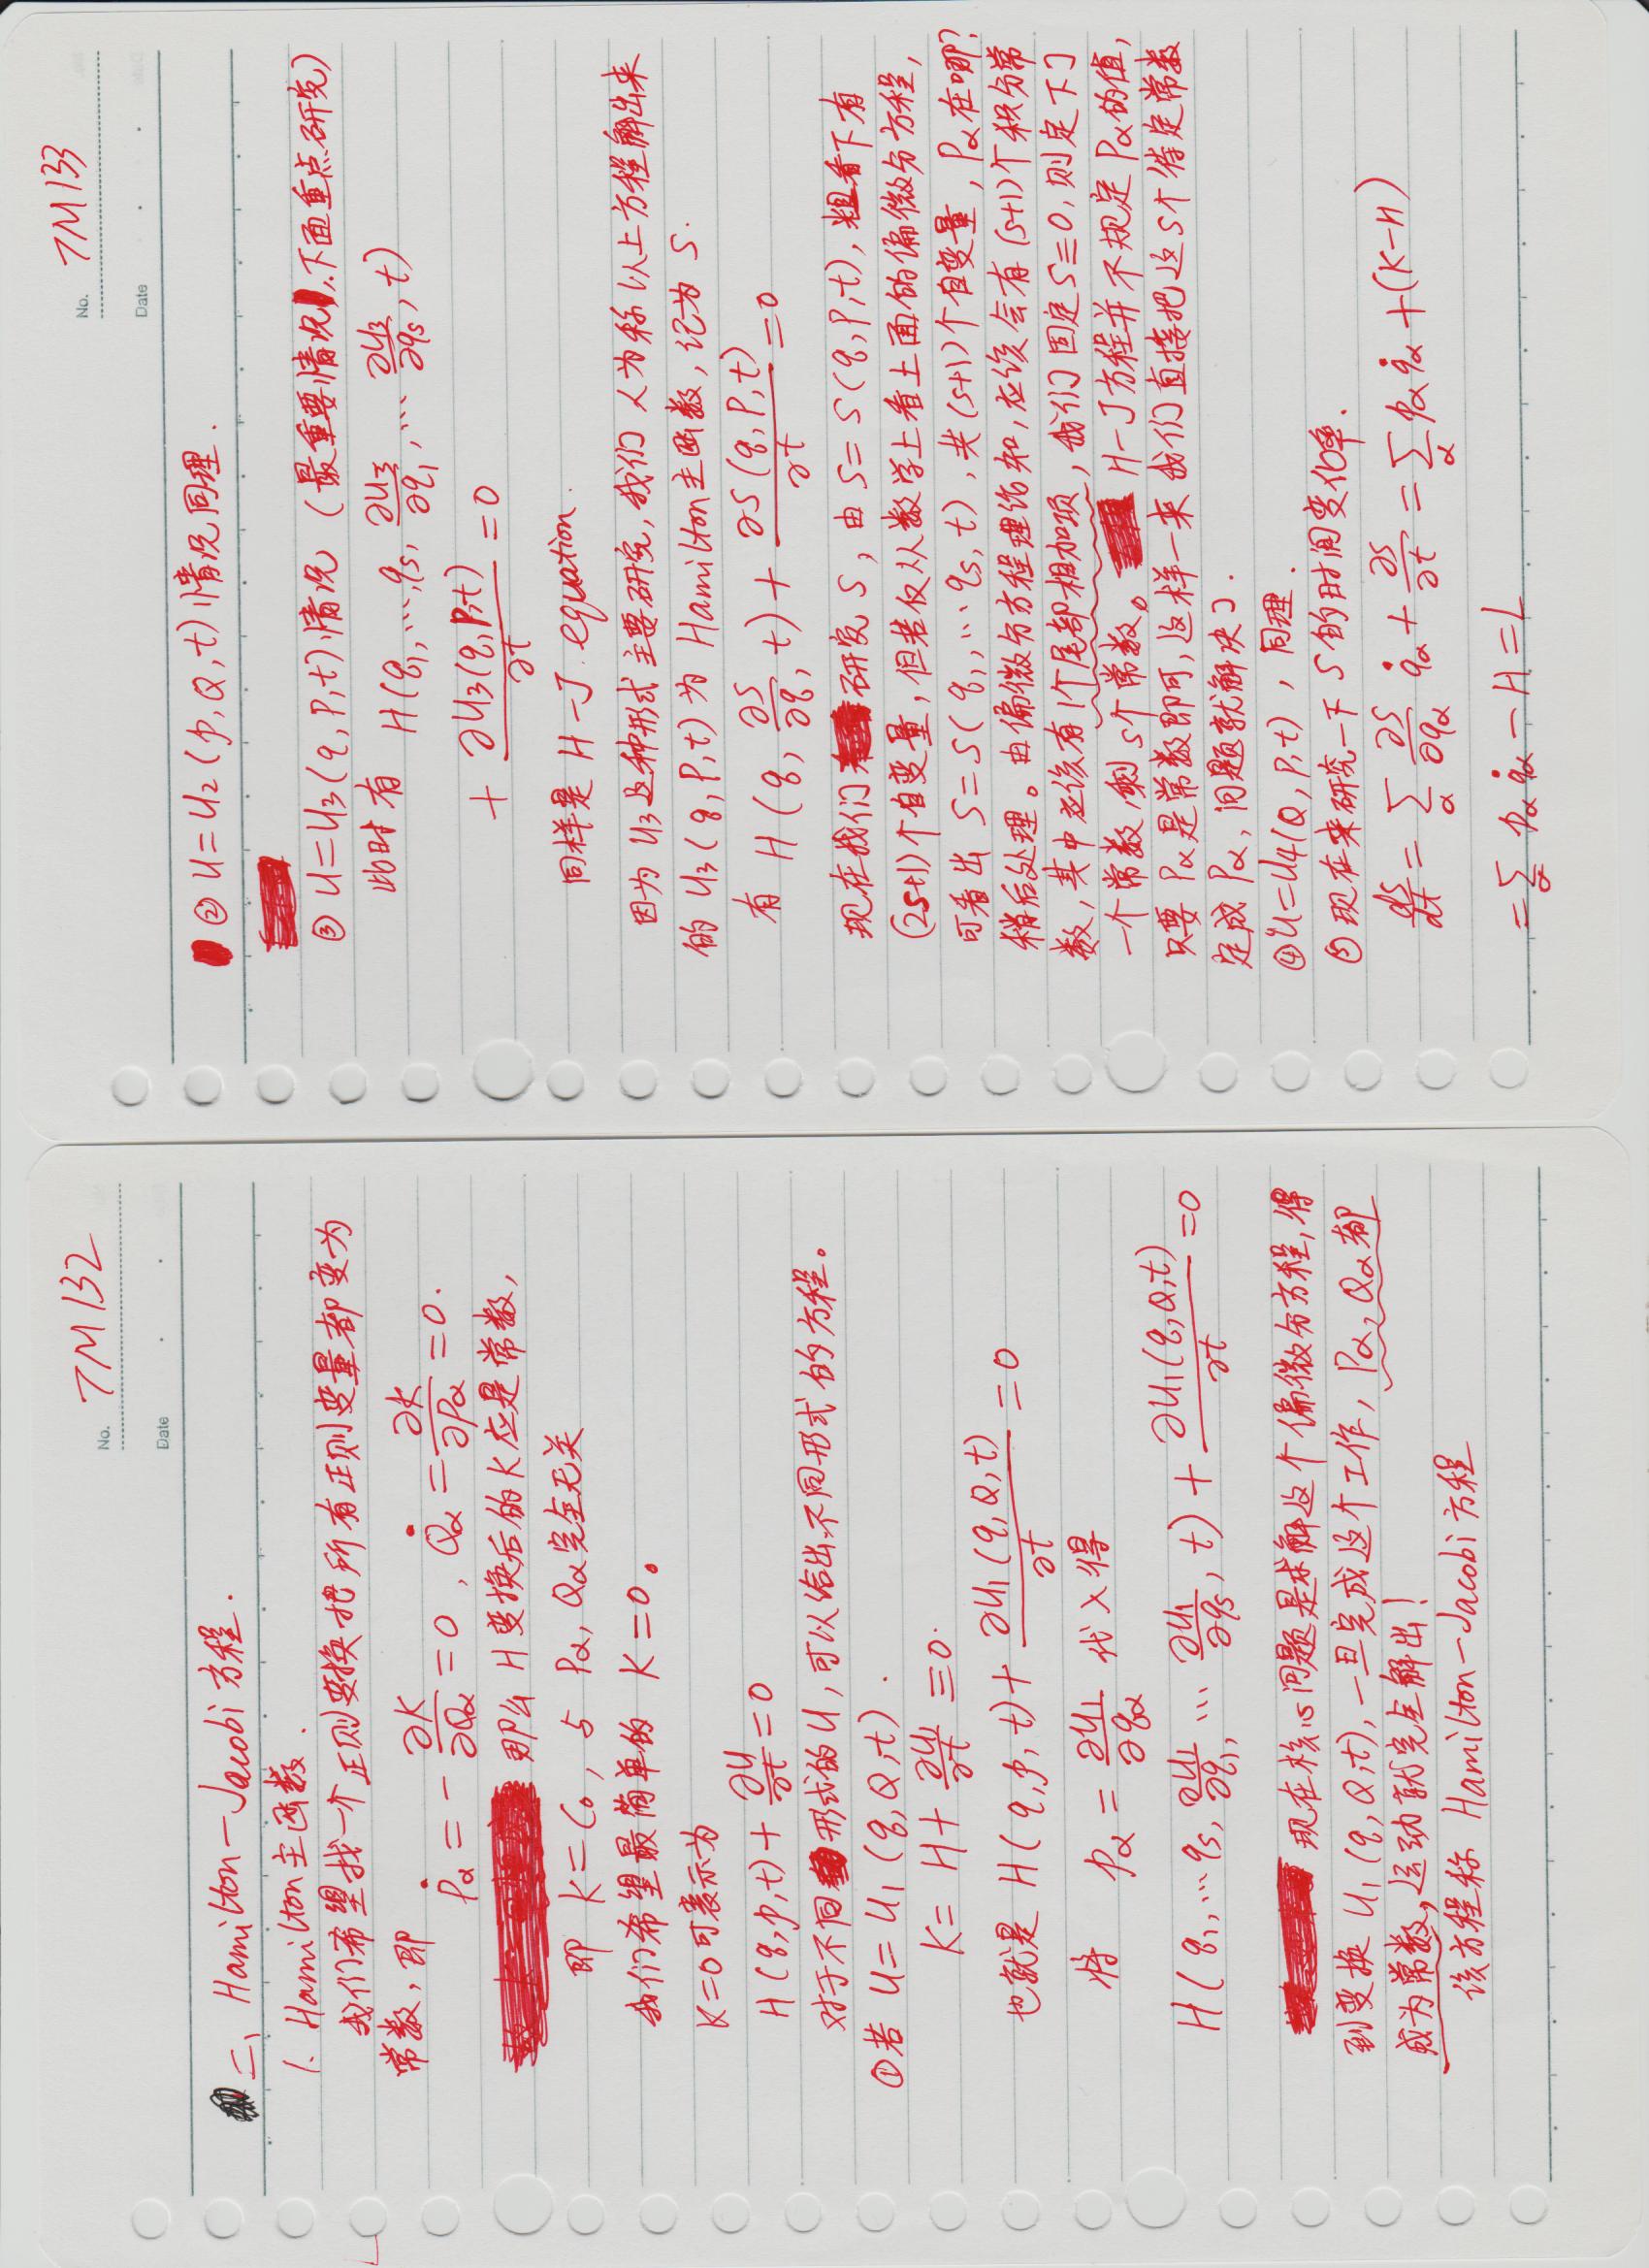 No. TM132
Date
二、Hamilton-Jacobi 方程.
1. Hamilton主函数.
我们希望找一个正则变换把所有正则变量都变为
常数, 即
Ṗα = - ∂K/∂Qα = 0 , Q̇α = ∂K/∂Pα = 0.
那么 H 变换后的 K 应是常数,
即 K = C₀, 与 Pα, Qα 完全无关
我们希望最简单的 K = 0。
K=0可表示为
H(q,p,t) + ∂U/∂t = 0
对于不同形式的U, 可以给出不同形式的方程。
①若 U = U₁(q,Q,t).
K = H + ∂U₁/∂t ≡ 0.
也就是 H(q,p,t) + ∂U₁(q,Q,t)/∂t = 0
将 pα = ∂U₁/∂qα 代入得
H(q₁,…qs, ∂U₁/∂q₁, … ∂U₁/∂qs, t) + ∂U₁(q,Q,t)/∂t = 0
现在核心问题是求解这个偏微分方程, 得
到变换 U₁(q,Q,t), 一旦完成这个工作, Pα, Qα都
成为常数, 运动就完全解出!
该方程称 Hamilton-Jacobi 方程
No. TM133
Date
② U = U₂(p,Q,t)情况同理.
③ U = U₃(q,P,t)情况 (最重要情况, 下面重点研究)
此时有 H(q₁,…,qs, ∂U₃/∂q₁, … ∂U₃/∂qs, t)
+ ∂U₃(q,P,t)/∂t = 0
同样是 H-J. equation.
因为 U₃这种形式主要研究, 我们人为称以上方程解出来
的 U₃(q,P,t)为 Hamilton主函数, 记为 S.
有 H(q, ∂S/∂q, t) + ∂S(q,P,t)/∂t = 0
现在我们研究 S, 由 S = S(q,P,t), 粗看下有
(2s+1)个自变量, 但若仅从数学上看上面的偏微分方程,
可看出 S = S(q₁,…qs,t), 共(s+1)个自变量, Pα在哪?
稍后处理。由偏微分方程理论知, 应该会有(s+1)个积分常
数, 其中应该有1个尾部相加项, 我们固定S≡0, 则定下了
一个常数, 剩 s个常数。 H-J方程并不规定 Pα的值,
只要 Pα是常数即可, 这样一来我们直接把这 s个待定常数
定成 Pα, 问题就解决了.
④ U = U₄(Q,P,t), 同理.
⑤ 现在来研究一下 S 的时间变化率.
dS/dt = Σα ∂S/∂qα q̇α + ∂S/∂t = Σα pα q̇α + (K-H)
= Σα pα q̇α - H = L